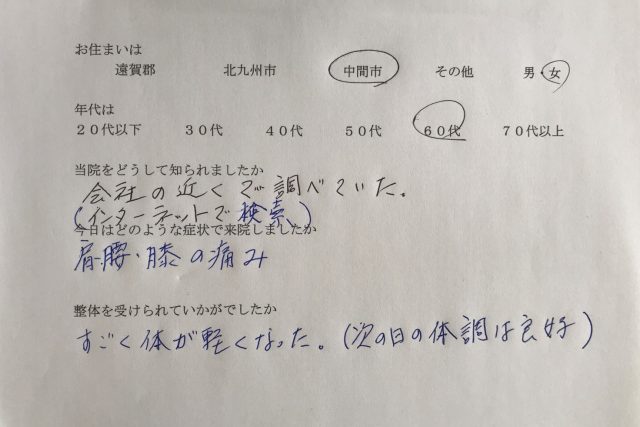 お住まいは
遠賀郡 北九州市 中間市 その他 男・女
年代は
20代以下 30代 40代 50代 60代 70代以上
当院をどうして知られましたか
会社の近くで調べていた。
(インターネットで検索)
今日はどのような症状で来院しましたか
肩・腰・膝の痛み
整体を受けられていかがでしたか
すごく体が軽くなった。(次の日の体調は良好)